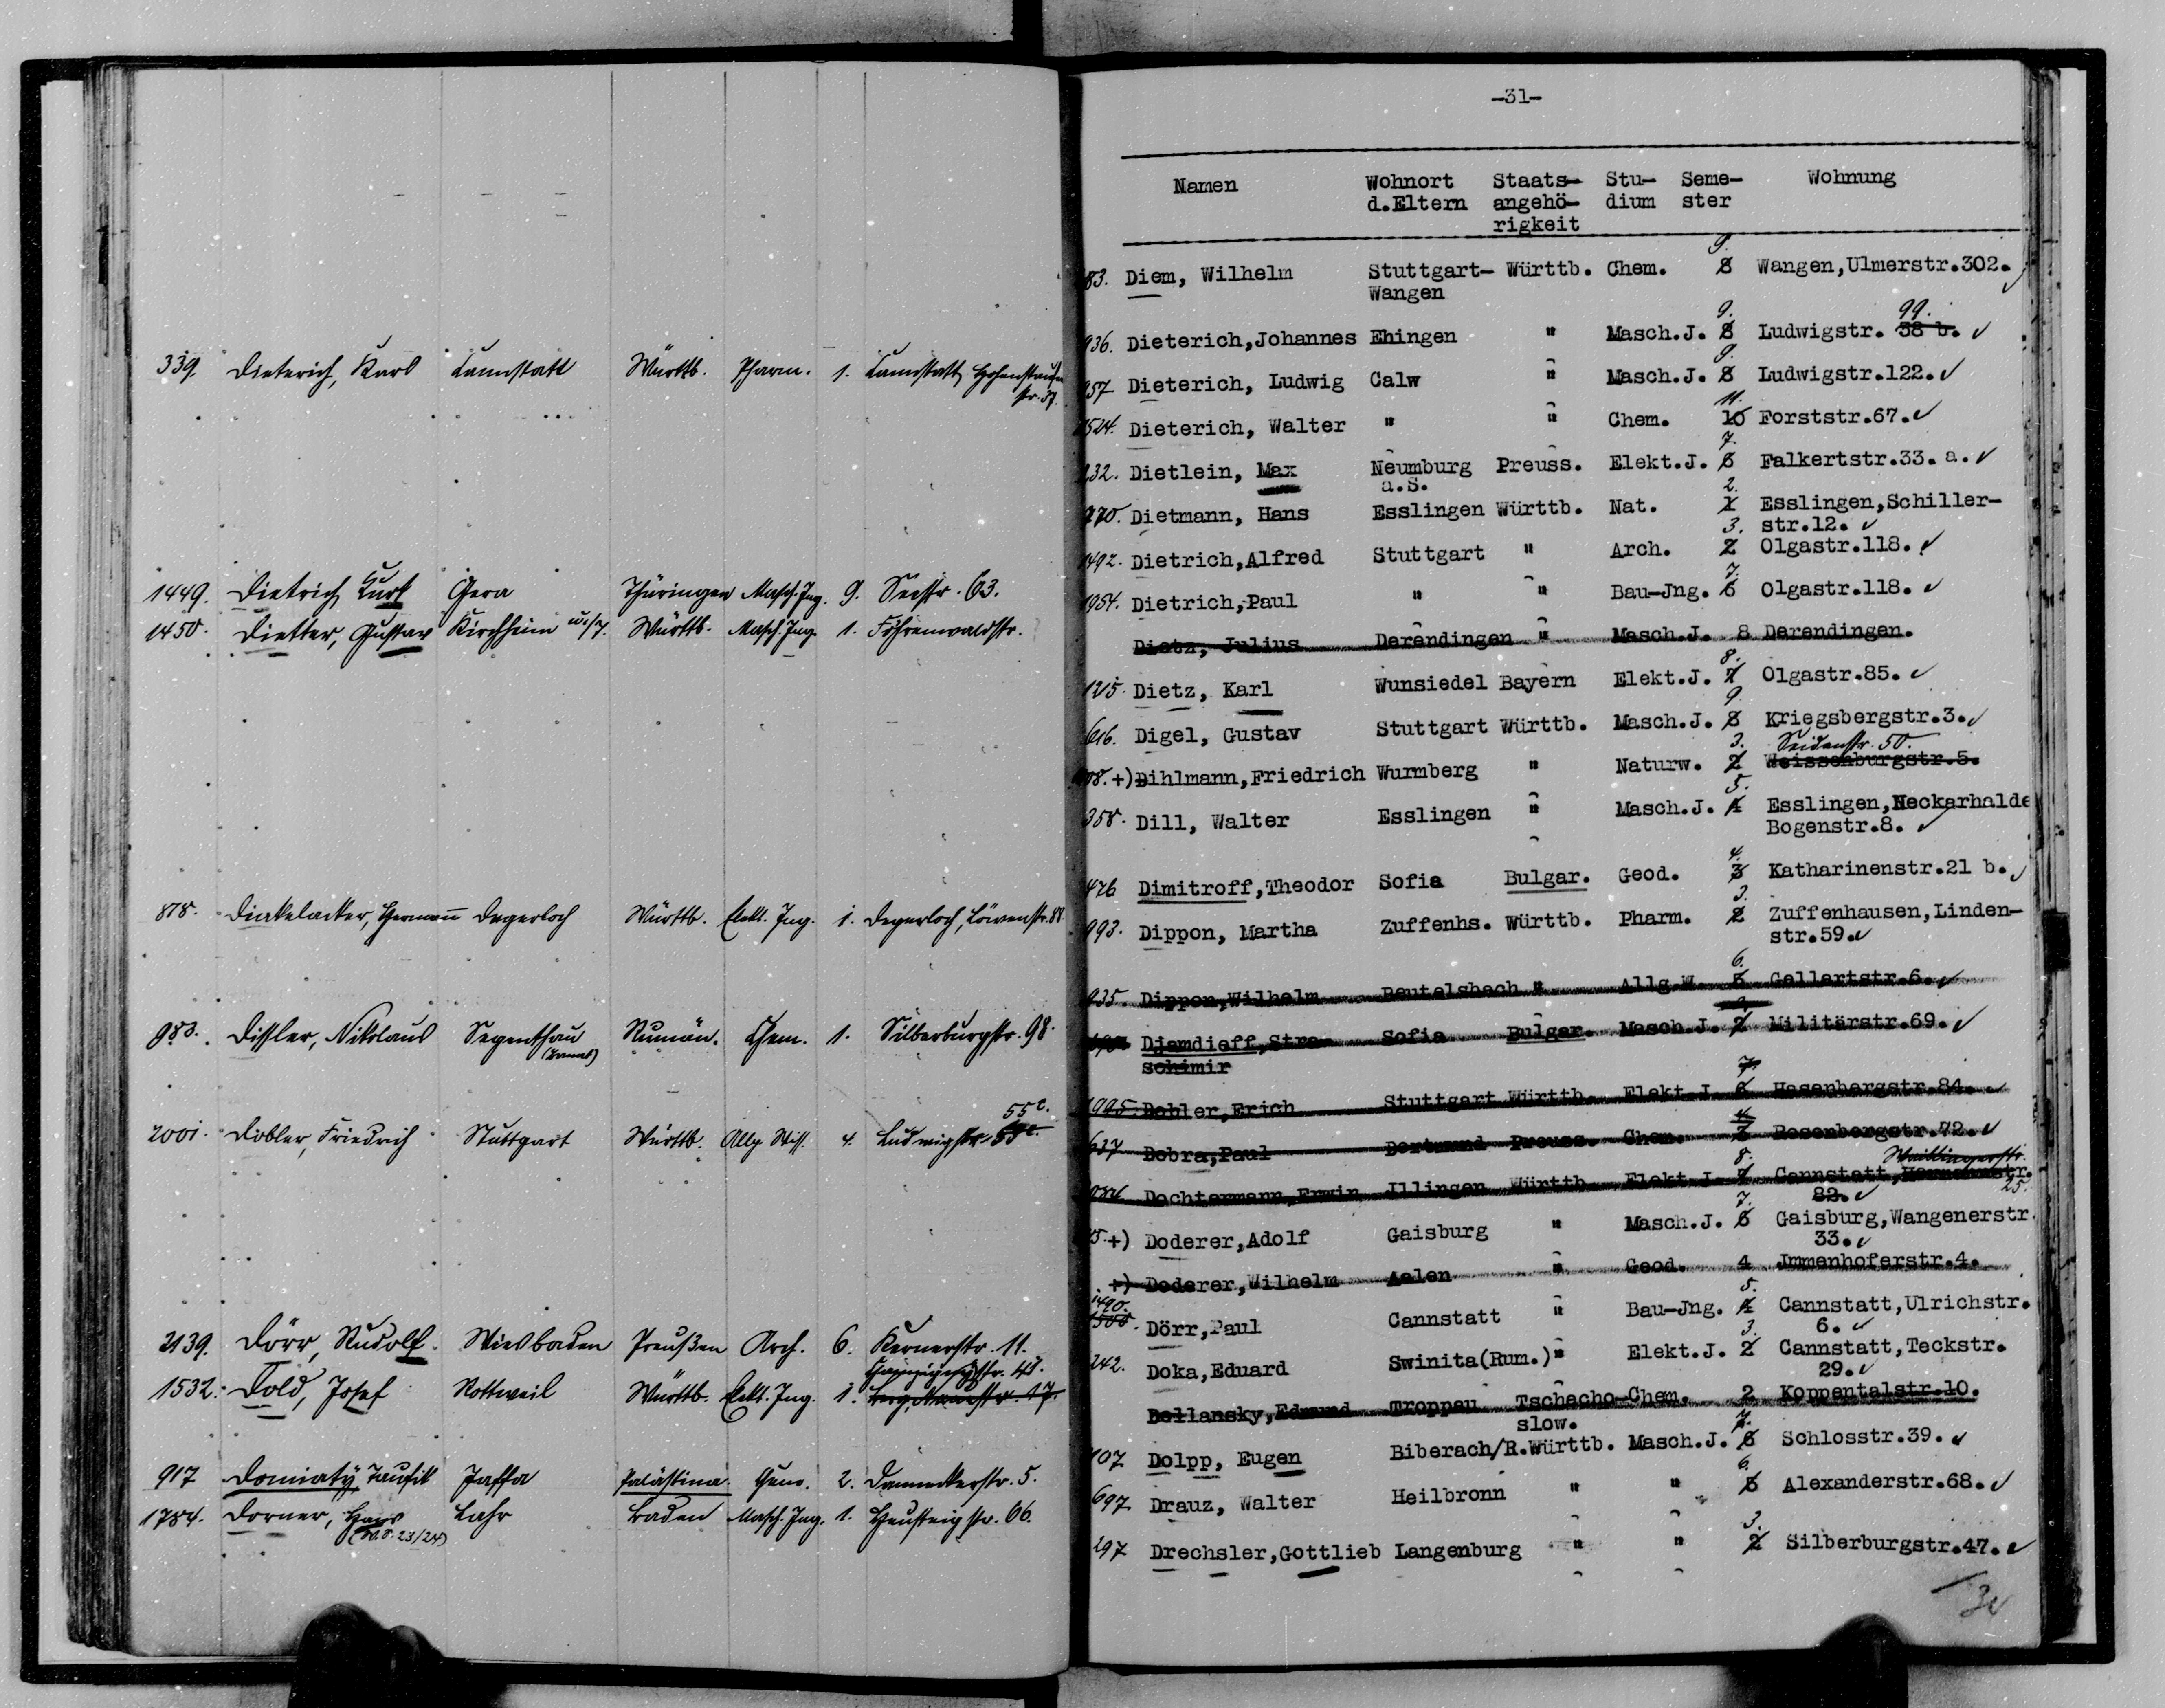 339. Dieterich, Karl Cannstatt Württb. Pharm. 1. Cannstatt, Hohenstaufen
str. 37.
1449. Dietrich, Kurt Gera Thüringen Masch. Ing. 9. Seestr. 63.
1450. Dietter, Gustav Kirchheim u/T. Württb. Masch. Ing. 1. Föhrenwaldstr.
878. Dinkelacker, Hermann Degerloch Württb. Elekt. Ing. 1. Degerloch, Löwenstr. 88
983. Dissler, Nikolaus Segenthau Rumän. Chem. 1. Silberburgstr. 98.
(Banat)
55c.
2001. Dobler, Friedrich Stuttgart Württb. Allg. Wiss. 4. Ludwigstr.
2139. Dörr, Rudolf. Wiesbaden Preußen Arch. 6. Kernerstr. 11.
1532. Dold, Josef Rottweil Württb. Elekt. Ing. 1.
917 Domiaty, Taufik Jaffa Palästina. 2. Danneckerstr. 5.
1784. Dorner, Hans Lahr Baden Masch. Ing. 1. Heusteigstr. 66.
(W.S. 23/24)
-31-
Namen Wohnort Staats- Stu- Seme- Wohnung
d.Eltern angehö- dium ster
rigkeit
9.
83. Diem, Wilhelm Stuttgart- Württb. Chem. 8 Wangen,Ulmerstr.302.
Wangen
9. 99.
936. Dieterich,Johannes Ehingen " Masch.J. 8 Ludwigstr. 38 b.
9.
957 Dieterich, Ludwig Calw " Masch.J. 8 Ludwigstr.122.
11.
1524. Dieterich, Walter " " Chem. 10 Forststr.67.
7.
232. Dietlein, Max Neumburg Preuss. Elekt.J. 6 Falkertstr.33. a.
a.S.
2.
970. Dietmann, Hans Esslingen Württb. Nat. 1 Esslingen,Schiller-
str.12.
3.
1492. Dietrich,Alfred Stuttgart " Arch. 2 Olgastr.118.
7.
1954. Dietrich,Paul " " Bau-Jng. 6 Olgastr.118.
Dietz, Julius Derendingen " Masch.J. 8 Derendingen.
8.
125. Dietz, Karl Wunsiedel Bayern Elekt.J. 7 Olgastr.85.
9.
616. Digel, Gustav Stuttgart Württb. Masch.J. 8 Kriegsbergstr.3.
3. Seidenstr. 50.
+)Dihlmann,Friedrich Wurmberg " Naturw. 2 Weissenburgstr.5.
5.
358. Dill, Walter Esslingen " Masch.J. 4 Esslingen,Neckarhalde
Bogenstr.8.
4.
476 Dimitroff,Theodor Sofia Bulgar. Geod. 3 Katharinenstr.21 b.
3.
993. Dippon, Martha Zuffenhs. Württb. Pharm. 2 Zuffenhausen,Linden-
str.59.
6.
935. Dippon,Wilhelm Beutelsbach " Allg.W. 5 Gellertstr.6.
Djamdieff,Stra- Sofia Bulgar. Masch.J. 2 Militärstr.69.
schimir
7.
1995. Dobler,Erich Stuttgart Württb. Elekt.J. 6 Hasenbergstr.84.
4.
637 Dobra,Paul Dortmund Preuss. Chem. 3 Rosenbergstr.72.
8.
Dochtermann,Erwin Jllingen Württb. Elekt.J. 7 Cannstatt,
82. 25.
7.
5.+) Doderer,Adolf Gaisburg " Masch.J. 6 Gaisburg,Wangenerstr.
33.
+) Doderer,Wilhelm Aalen " Geod. 4 Jmmenhoferstr.4.
1490. 5.
1500. Dörr,Paul Cannstatt " Bau-Jng. 4 Cannstatt,Ulrichstr.
6.
3.
242. Doka,Eduard Swinita(Rum.)" Elekt.J. 2 Cannstatt,Teckstr.
29.
Dollansky,Edmund Troppau Tschecho-Chem. 2 Koppentalstr.10.
slow.
7.
107 Dolpp, Eugen Biberach/R.Württb. Masch.J. 6 Schlosstr.39.
6.
697 Drauz, Walter Heilbronn " " 5 Alexanderstr.68.
3.
297 Drechsler,Gottlieb Langenburg " " 2 Silberburgstr.47.